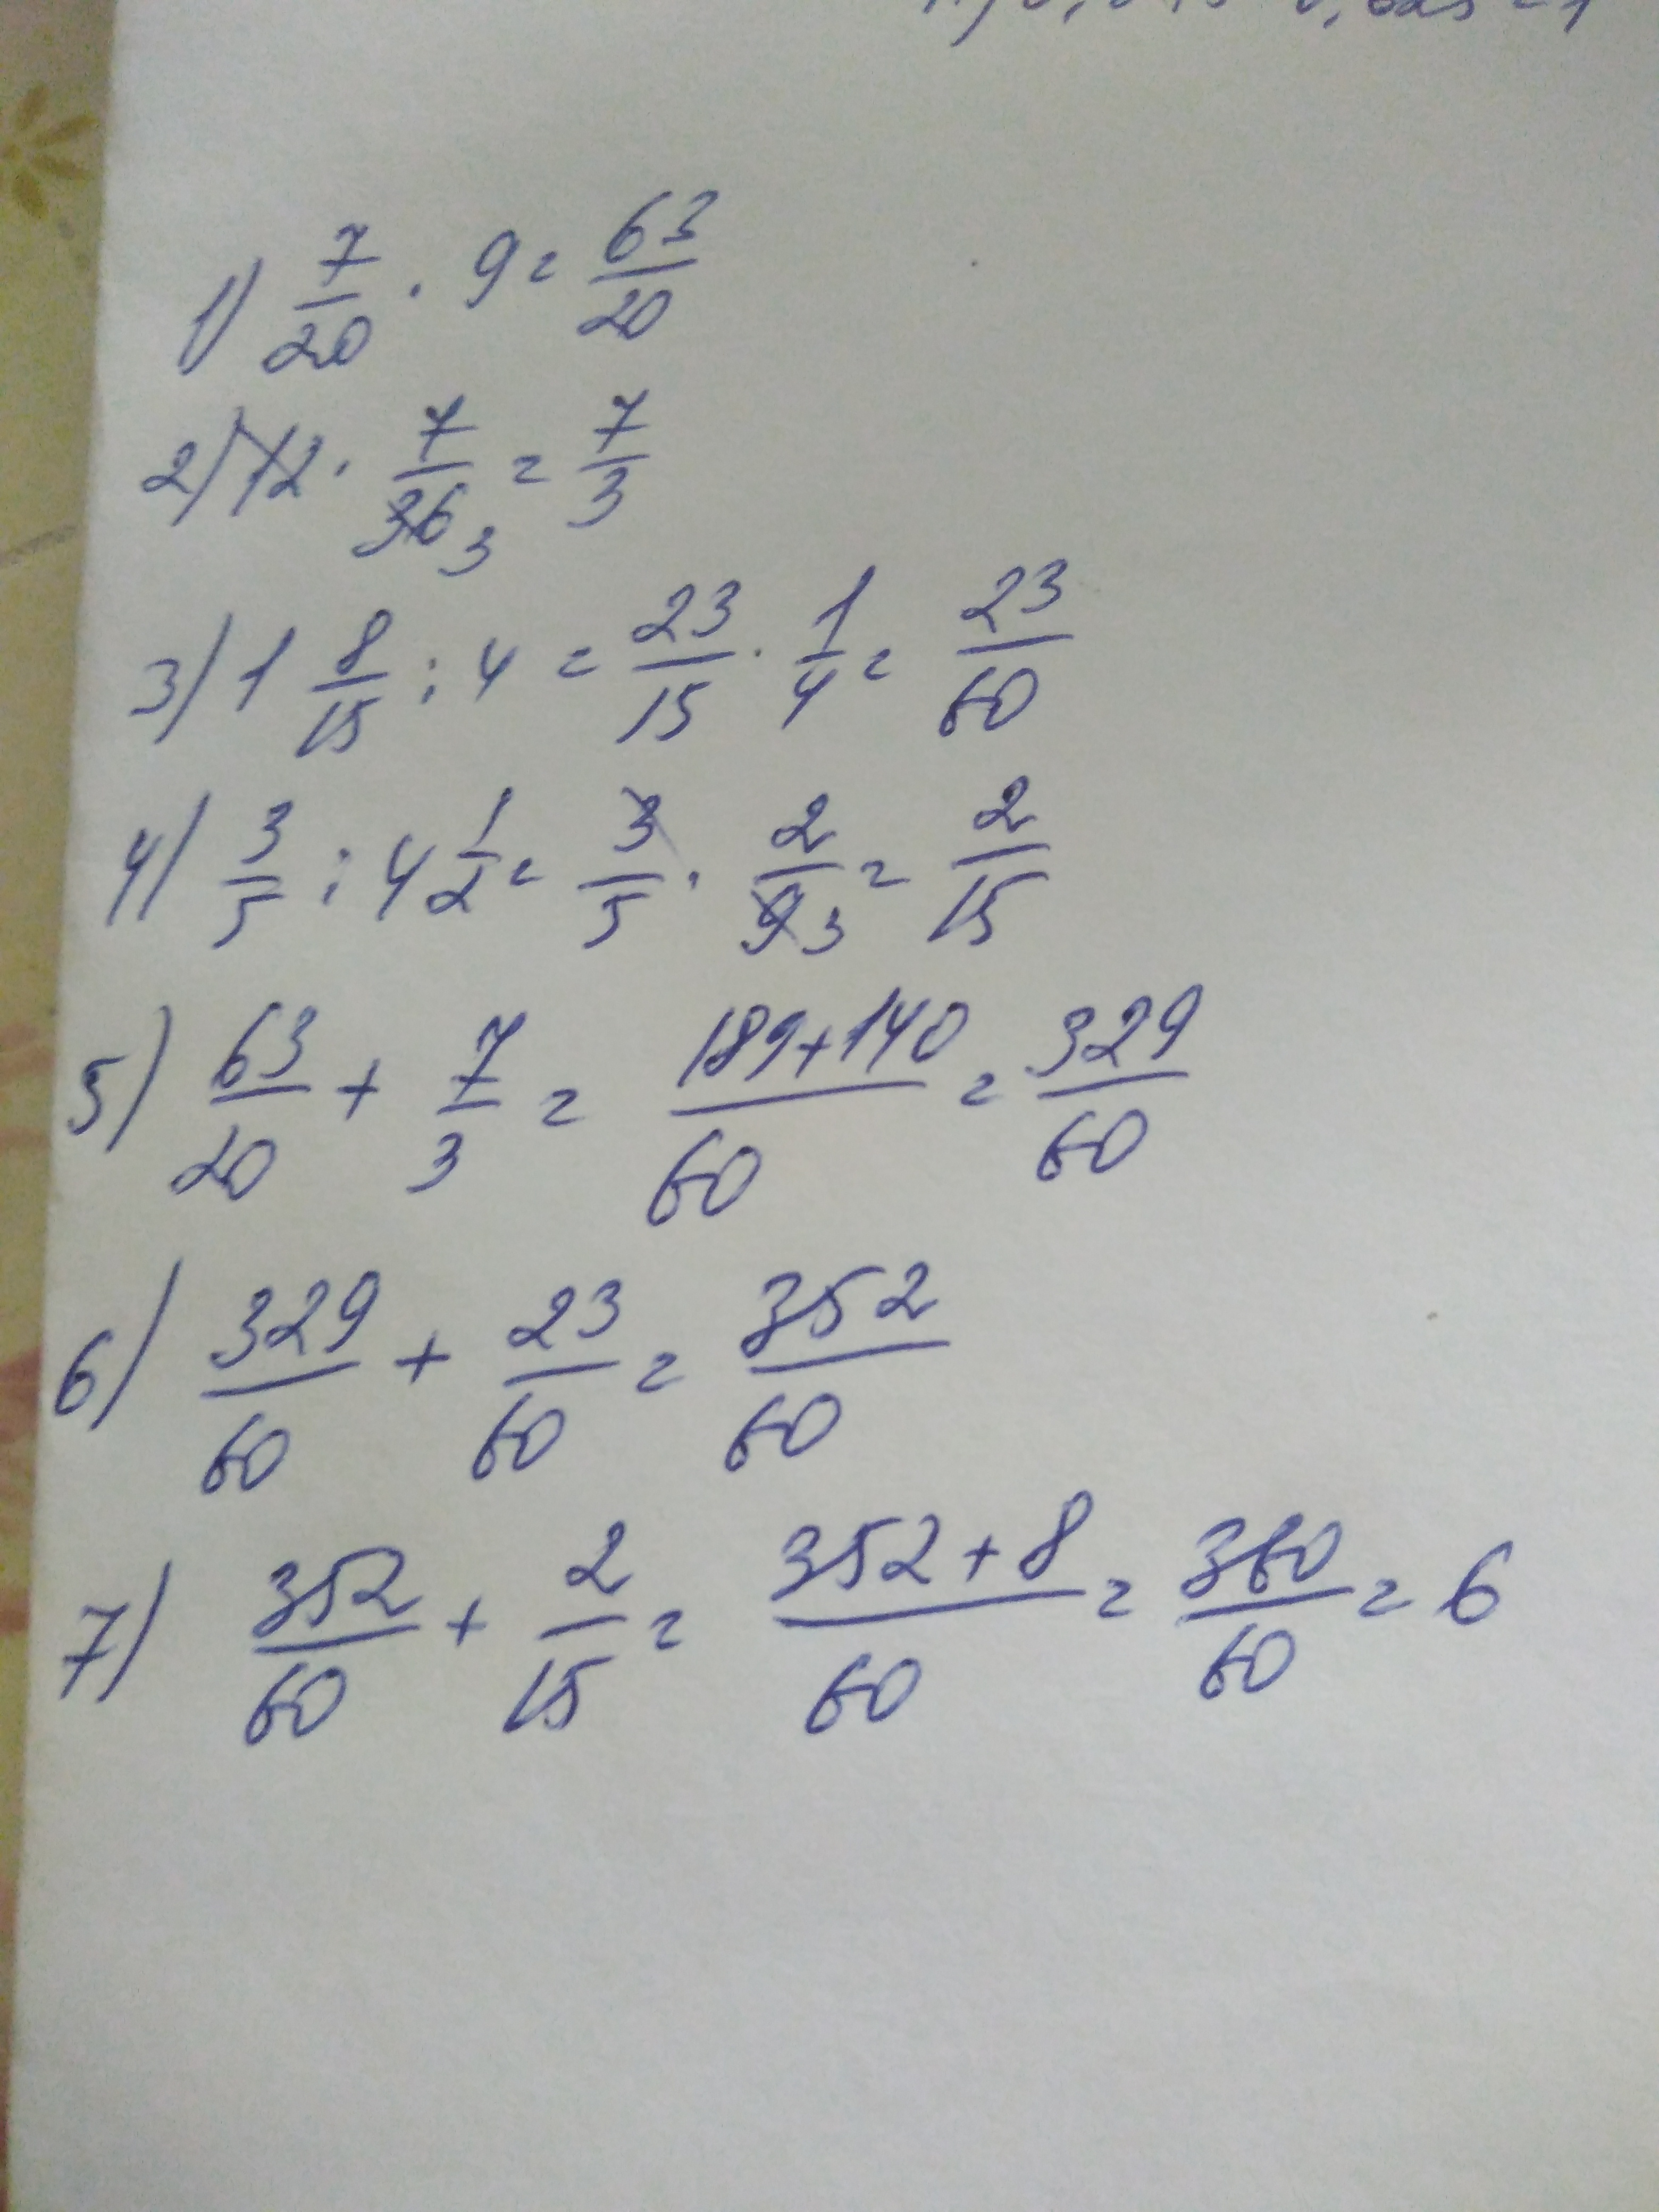 1) 7/20 · 9 = 63/20
2) 12 · 7/36 3 = 7/3
3) 1 8/15 : 4 = 23/15 · 1/4 = 23/60
4) 3/5 : 4 1/2 = 3/5 · 2/9 3 = 2/15
5) 63/20 + 7/3 = 189+140/60 = 329/60
6) 329/60 + 23/60 = 352/60
7) 352/60 + 2/15 = 352+8/60 = 360/60 = 6